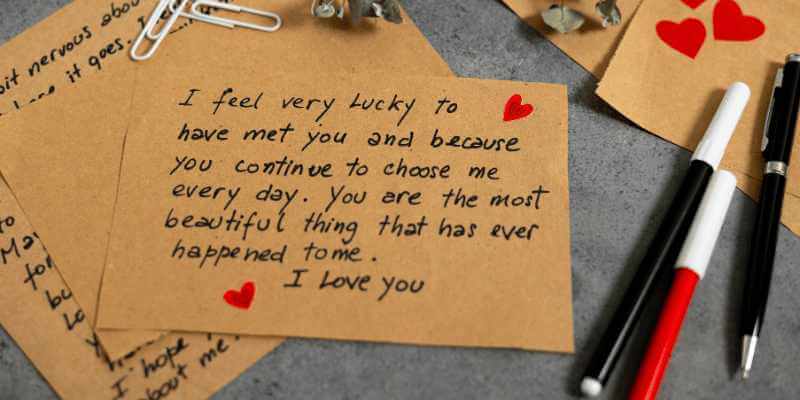 bit nervous about
it goes.
I feel very Lucky to
have met you and because
you continue to choose me
every day. You are the most
beautiful thing that has ever
happened tome.
I Love you
to
for
I hope
about me.